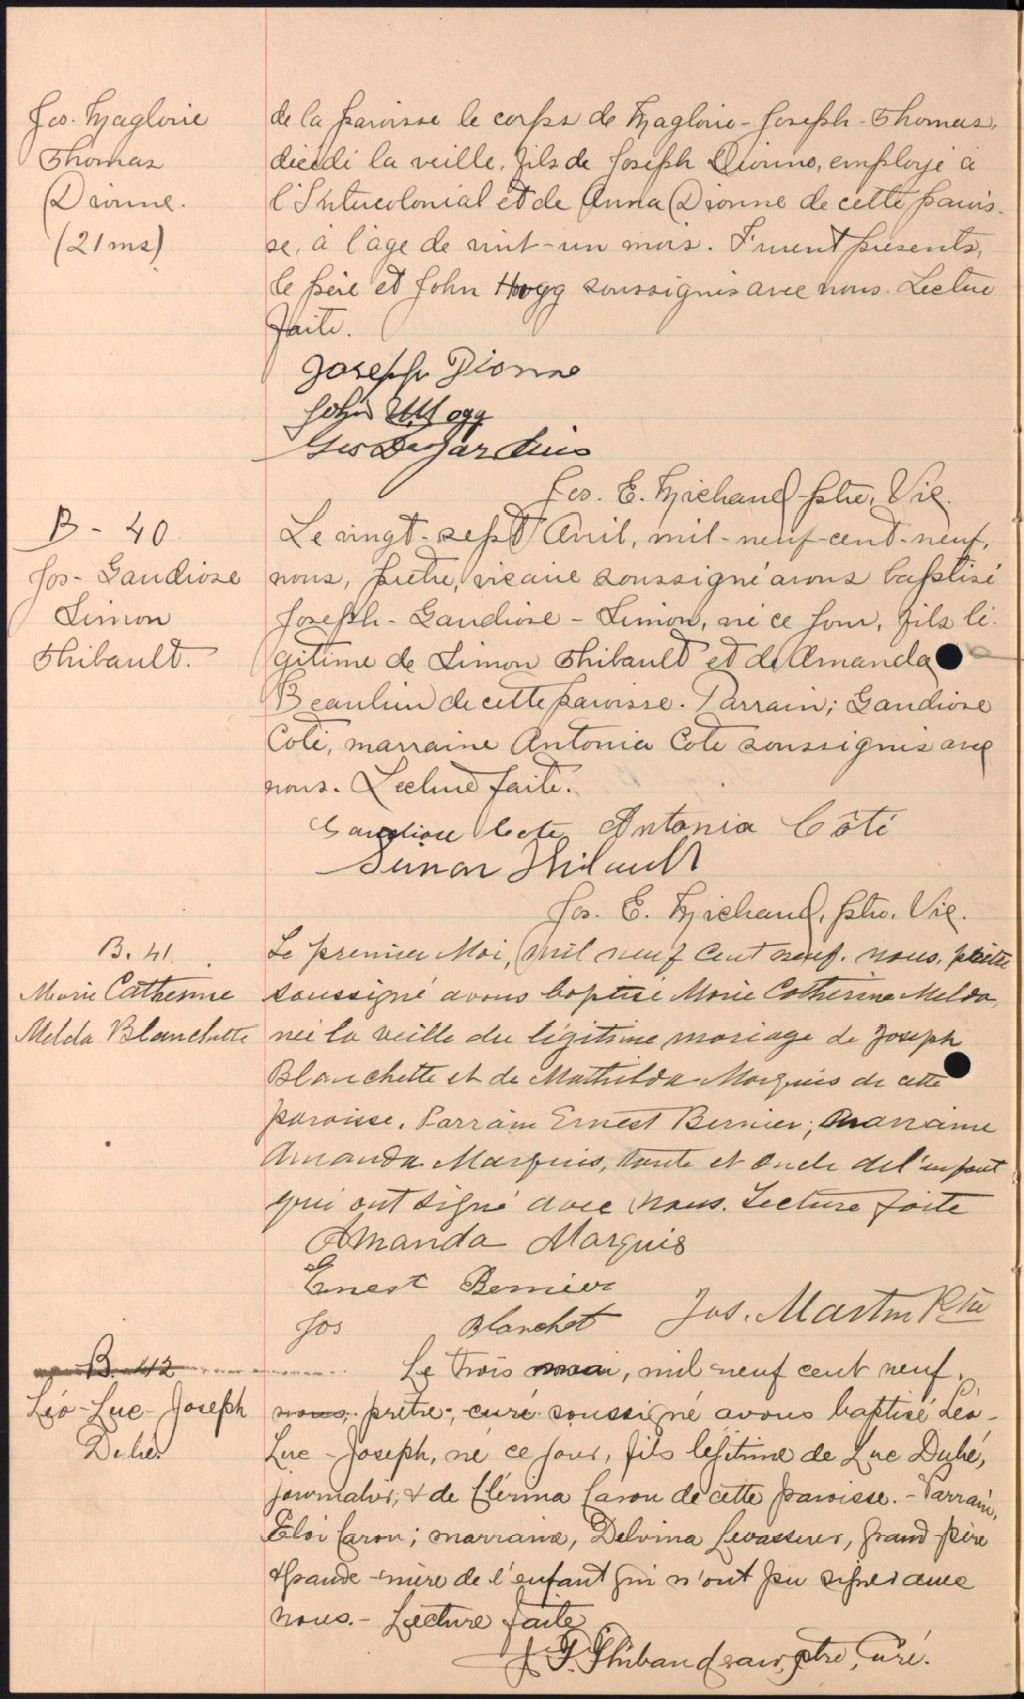 Jos. Magloire
Thomas
Dionne.
(21 ms)
de la paroisse le corps de Magloire-Joseph-Thomas,
décédé la veille, fils de Joseph Dionne, employé à
l'Intercolonial et de Anna Dionne de cette parois-
se, à l'âge de vint-un mois. Furent présents,
le père et John Hogg soussignés avec nous. Lecture
faite.
Joseph Dionne
John Hogg
Geo Desjardins
Jos. E. Michaud ptre, Vic.
B - 40
Jos- Gaudiose
Simon
Thibault.
Le vingt-sept Avril, mil-neuf-cent-neuf,
nous, prêtre, vicaire soussigné avons baptisé
Joseph-Gaudiose-Simon, né ce jour, fils lé-
gitime de Simon Thibault et de Amanda
Beaulieu de cette paroisse. Parrain; Gaudiose
Coté, marraine Antonia Coté soussignés avec
nous. Lecture faite.
Gaudiose Cote Antonia Côté
Simon Thibault
Jos. E. Michaud, ptre. Vic.
B. 41.
Marie Catherine
Melda Blanchette
Le premier Mai, mil neuf cent neuf. nous, prêtre
soussigné avons baptisé Marie Catherine Melda,
née la veille du légitime mariage de Joseph
Blanchette et de Mathilda Marquis de cette
paroisse. Parrain Ernest Bernier; marraine
Amanda Marquis, tante et oncle de l'enfant
qui ont signé avec nous. Lecture faite
Amanda Marquis
Ernest Bernier
Jos Blanchet Jos. Martin Ptre
B. 42
Léo-Luc-Joseph
Dubé
Le trois mai, mil neuf cent neuf,
nous, prêtre, curé soussigné avons baptisé Léo-
Luc-Joseph, né ce jour, fils légitime de Luc Dubé,
journalier, & de Clérina Caron de cette paroisse.- Parrain,
Eloi Caron; marraine, Delvina Levasseur, grand-père
& grande-mère de l'enfant qui n'ont pu signer avec
nous.- Lecture faite
Thibaudeau, ptre, Curé.